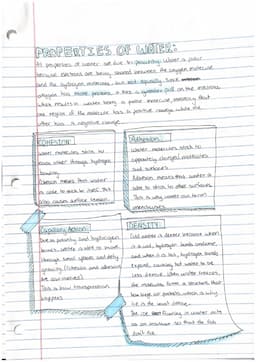 PROPERTIES OF WATER:
All properties of water are due to polarity. Water is polar
because electrons are being shared between the oxygen molecule
and the hydrogen molecules, but not equally. Since
oxygen has more protons, it has a greater pull on the electrons
which results in water being a polar molecule, meaning that
one region of the molecule has a positive charge while the
other has a negative charge.
COHESION:
Water molecules stick to
each other through hydrogen
bonding.
Cohesion means that water
is able to stick to itself. This
also causes surface tension.
Adhesion:
Water molecules stick to
oppositely charged molecules
and surfaces.
Adhesion means that water is
able to stick to other surfaces.
This is why water can form
Capillary Action:
Due to polarity and hydrogen
bonds, water is able to move
through small spaces and defy
gravity. (Cohesion and adhesion
are also involved)
This is how transpiration
happens
DENSITY:
Cold water is denser because when
it is cold, hydrogen bonds condense,
and when it is hot, hydrogen bonds
expand, causing hot water to be
less dense. When water freezes,
the molecules form a structure that
has large air pockets which is why
ice is the least dense.
The ice floating in water acts
as an insulator so that the fish
don't die.